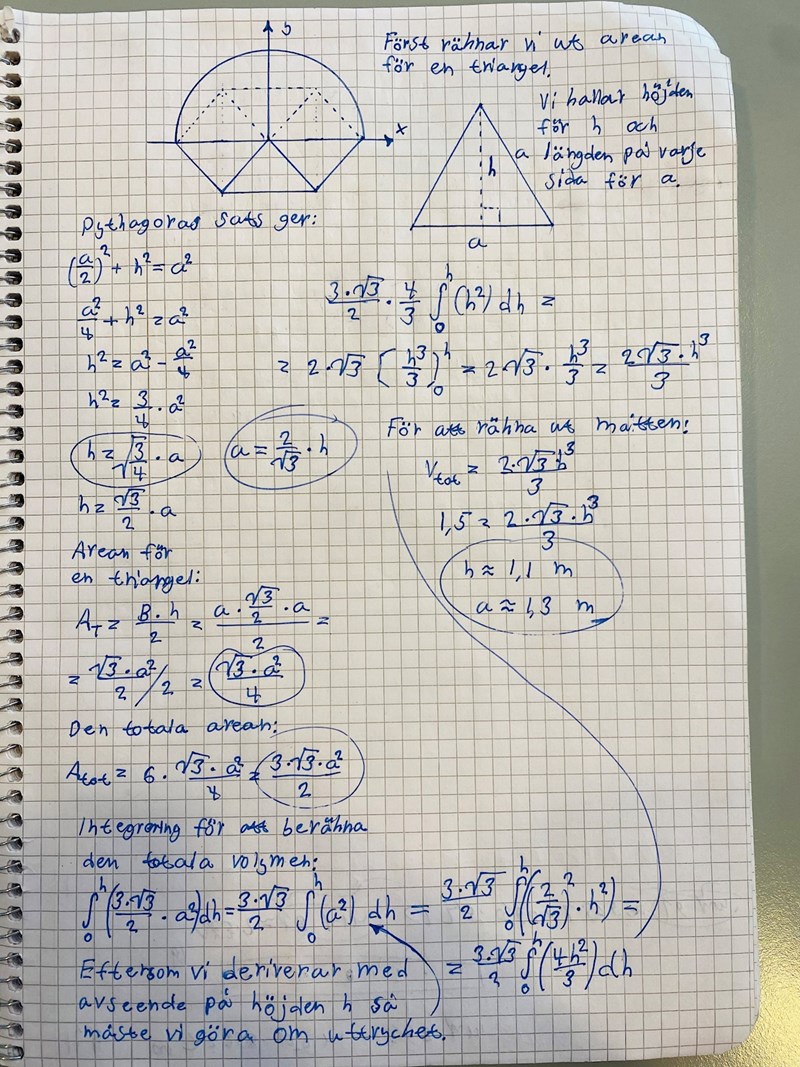 y
x
Först räknar vi ut arean
för en triangel.
Vi kallar höjden
för h och
längden på varje
sida för a.
a
h
a
Pythagoras sats ger:
(a/2)² + h² = a²
a²/4 + h² = a²
h² = a² - a²/4
h² = 3/4 · a²
h = √3/√4 · a
a = 2/√3 · h
h = √3/2 · a
Arean för
en triangel:
A_T = B·h/2 = (a · √3/2 · a)/2 =
= √3·a²/2 / 2 = √3·a²/4
Den totala arean:
A_tot = 6 · √3·a²/4 = 3·√3·a²/2
Integrering för att beräkna
den totala volymen:
∫₀ʰ (3·√3/2 · a²) dh = 3·√3/2 ∫₀ʰ (a²) dh = 3·√3/2 ∫₀ʰ ((2/√3)² · h²) =
= 3·√3/2 ∫₀ʰ (4h²/3) dh
Eftersom vi deriverar med
avseende på höjden h så
måste vi göra om uttrycket.
3·√3/2 · 4/3 ∫₀ʰ (h²) dh =
= 2·√3 [h³/3]₀ʰ = 2·√3 · h³/3 = 2√3·h³/3
För att räkna ut måtten:
V_tot = 2·√3·h³/3
1,5 = 2·√3·h³/3
h ≈ 1,1 m
a ≈ 1,3 m